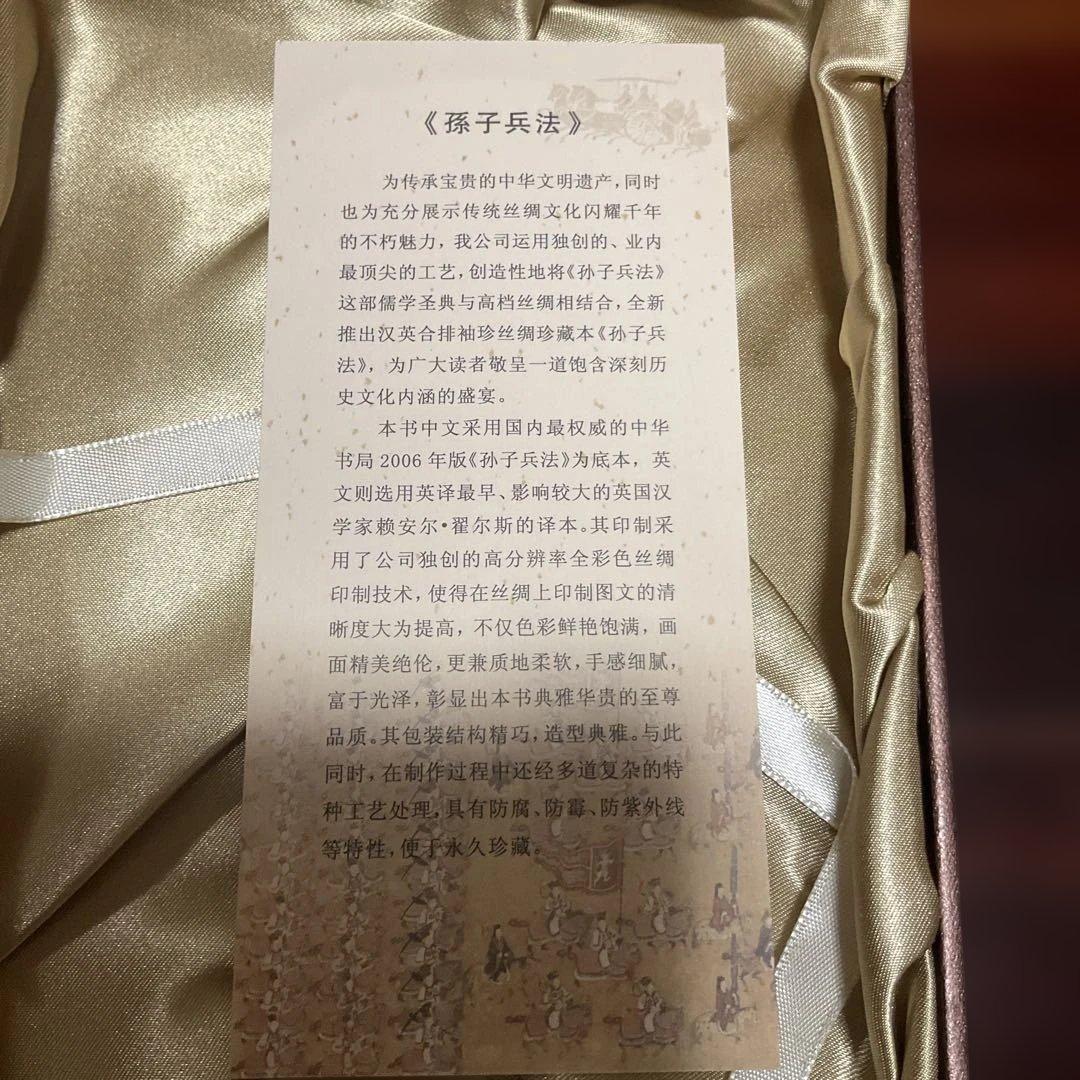 《孫子兵法》
为传承宝贵的中华文明遗产,同时
也为充分展示传统丝绸文化闪耀千年
的不朽魅力，我公司运用独创的、业内
最顶尖的工艺,创造性地将《孙子兵法》
这部儒学圣典与高档丝绸相结合,全新
推出汉英合排袖珍丝绸珍藏本《孙子兵
法》，为广大读者敬呈一道饱含深刻历
史文化内涵的盛宴。
本书中文采用国内最权威的中华
书局 2006 年版《孙子兵法》为底本，英
文则选用英译最早、影响较大的英国汉
学家赖安尔•翟尔斯的译本。其印制采
用了公司独创的高分辨率全彩色丝绸
印制技术，使得在丝绸上印制图文的清
晰度大为提高，不仅色彩鲜艳饱满，画
面精美绝伦,更兼质地柔软,手感细腻,
富于光泽,彰显出本书典雅华贵的至尊
品质。其包装结构精巧,造型典雅。与此
同时,在制作过程中还经多道复杂的特
种工艺处理,具有防腐、防霉、防紫外线
等特性,便于永久珍藏。